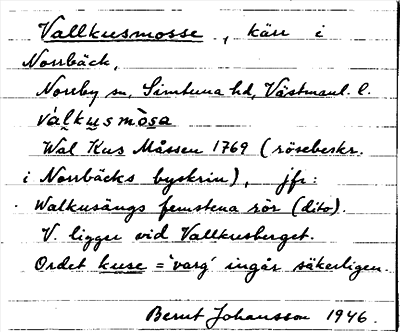 Vallkusmosse, kärr i
Norrbäck,
Norrby sn, Simtuna hd, Västmanl. l.
válkusmòsa
Wal Kus Måssen 1769 (rösebeskr.
i Norrbäcks byskrin), jfr:
Walkusängs femstena rör (dito).
V. ligger vid Vallkusberget.
Ordet kuse = 'varg' ingår säkerligen.
Bernt Johansson 1946.